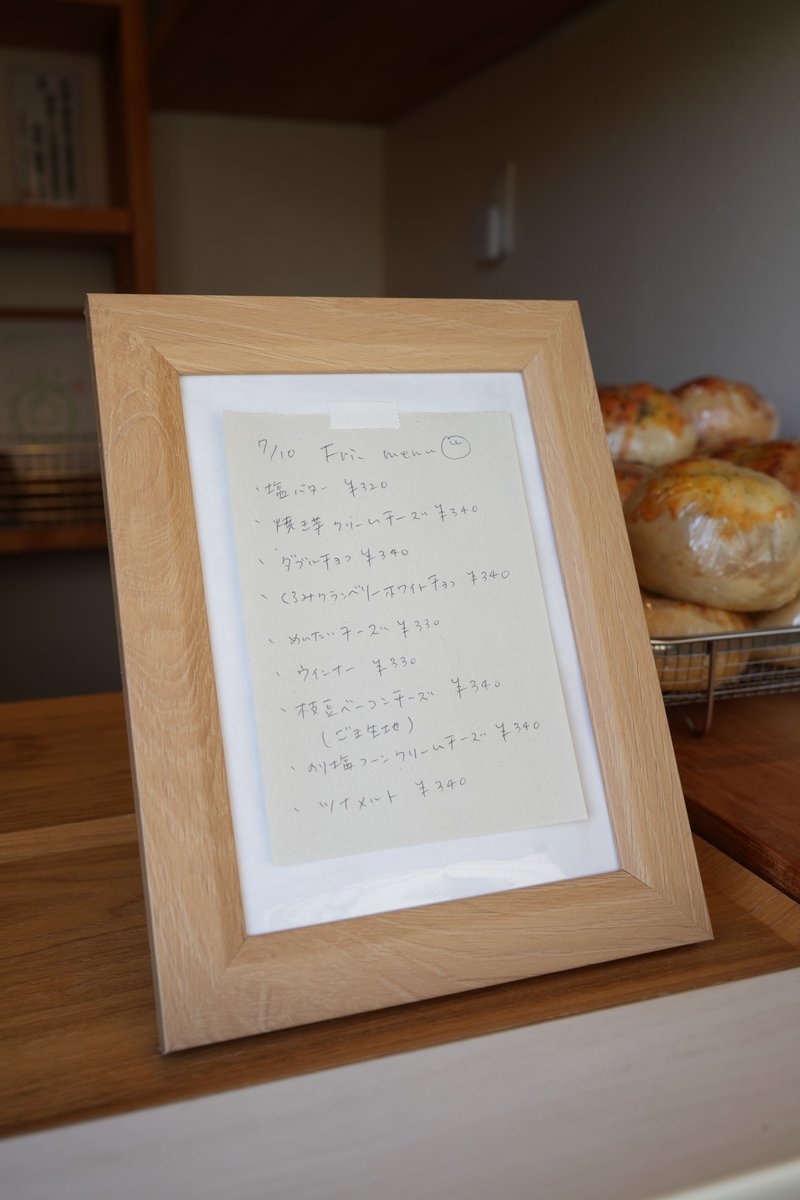 7/10 Fri. menu
、塩バター ¥320
、焼き芋クリームチーズ ¥340
、ダブルチョコ ¥340
、くるみクランベリーホワイトチョコ ¥340
、めんたいチーズ ¥330
、ウィンナー ¥330
、枝豆ベーコンチーズ ¥340
(ごま生地)
、のり塩コーンクリームチーズ ¥340
、ツナメルト ¥340